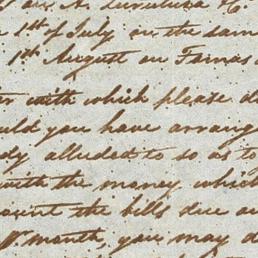 1st of July on the same
1st August on
with which please
you have arrang
alluded to so as to
with the money which
the bills due
month, you may d